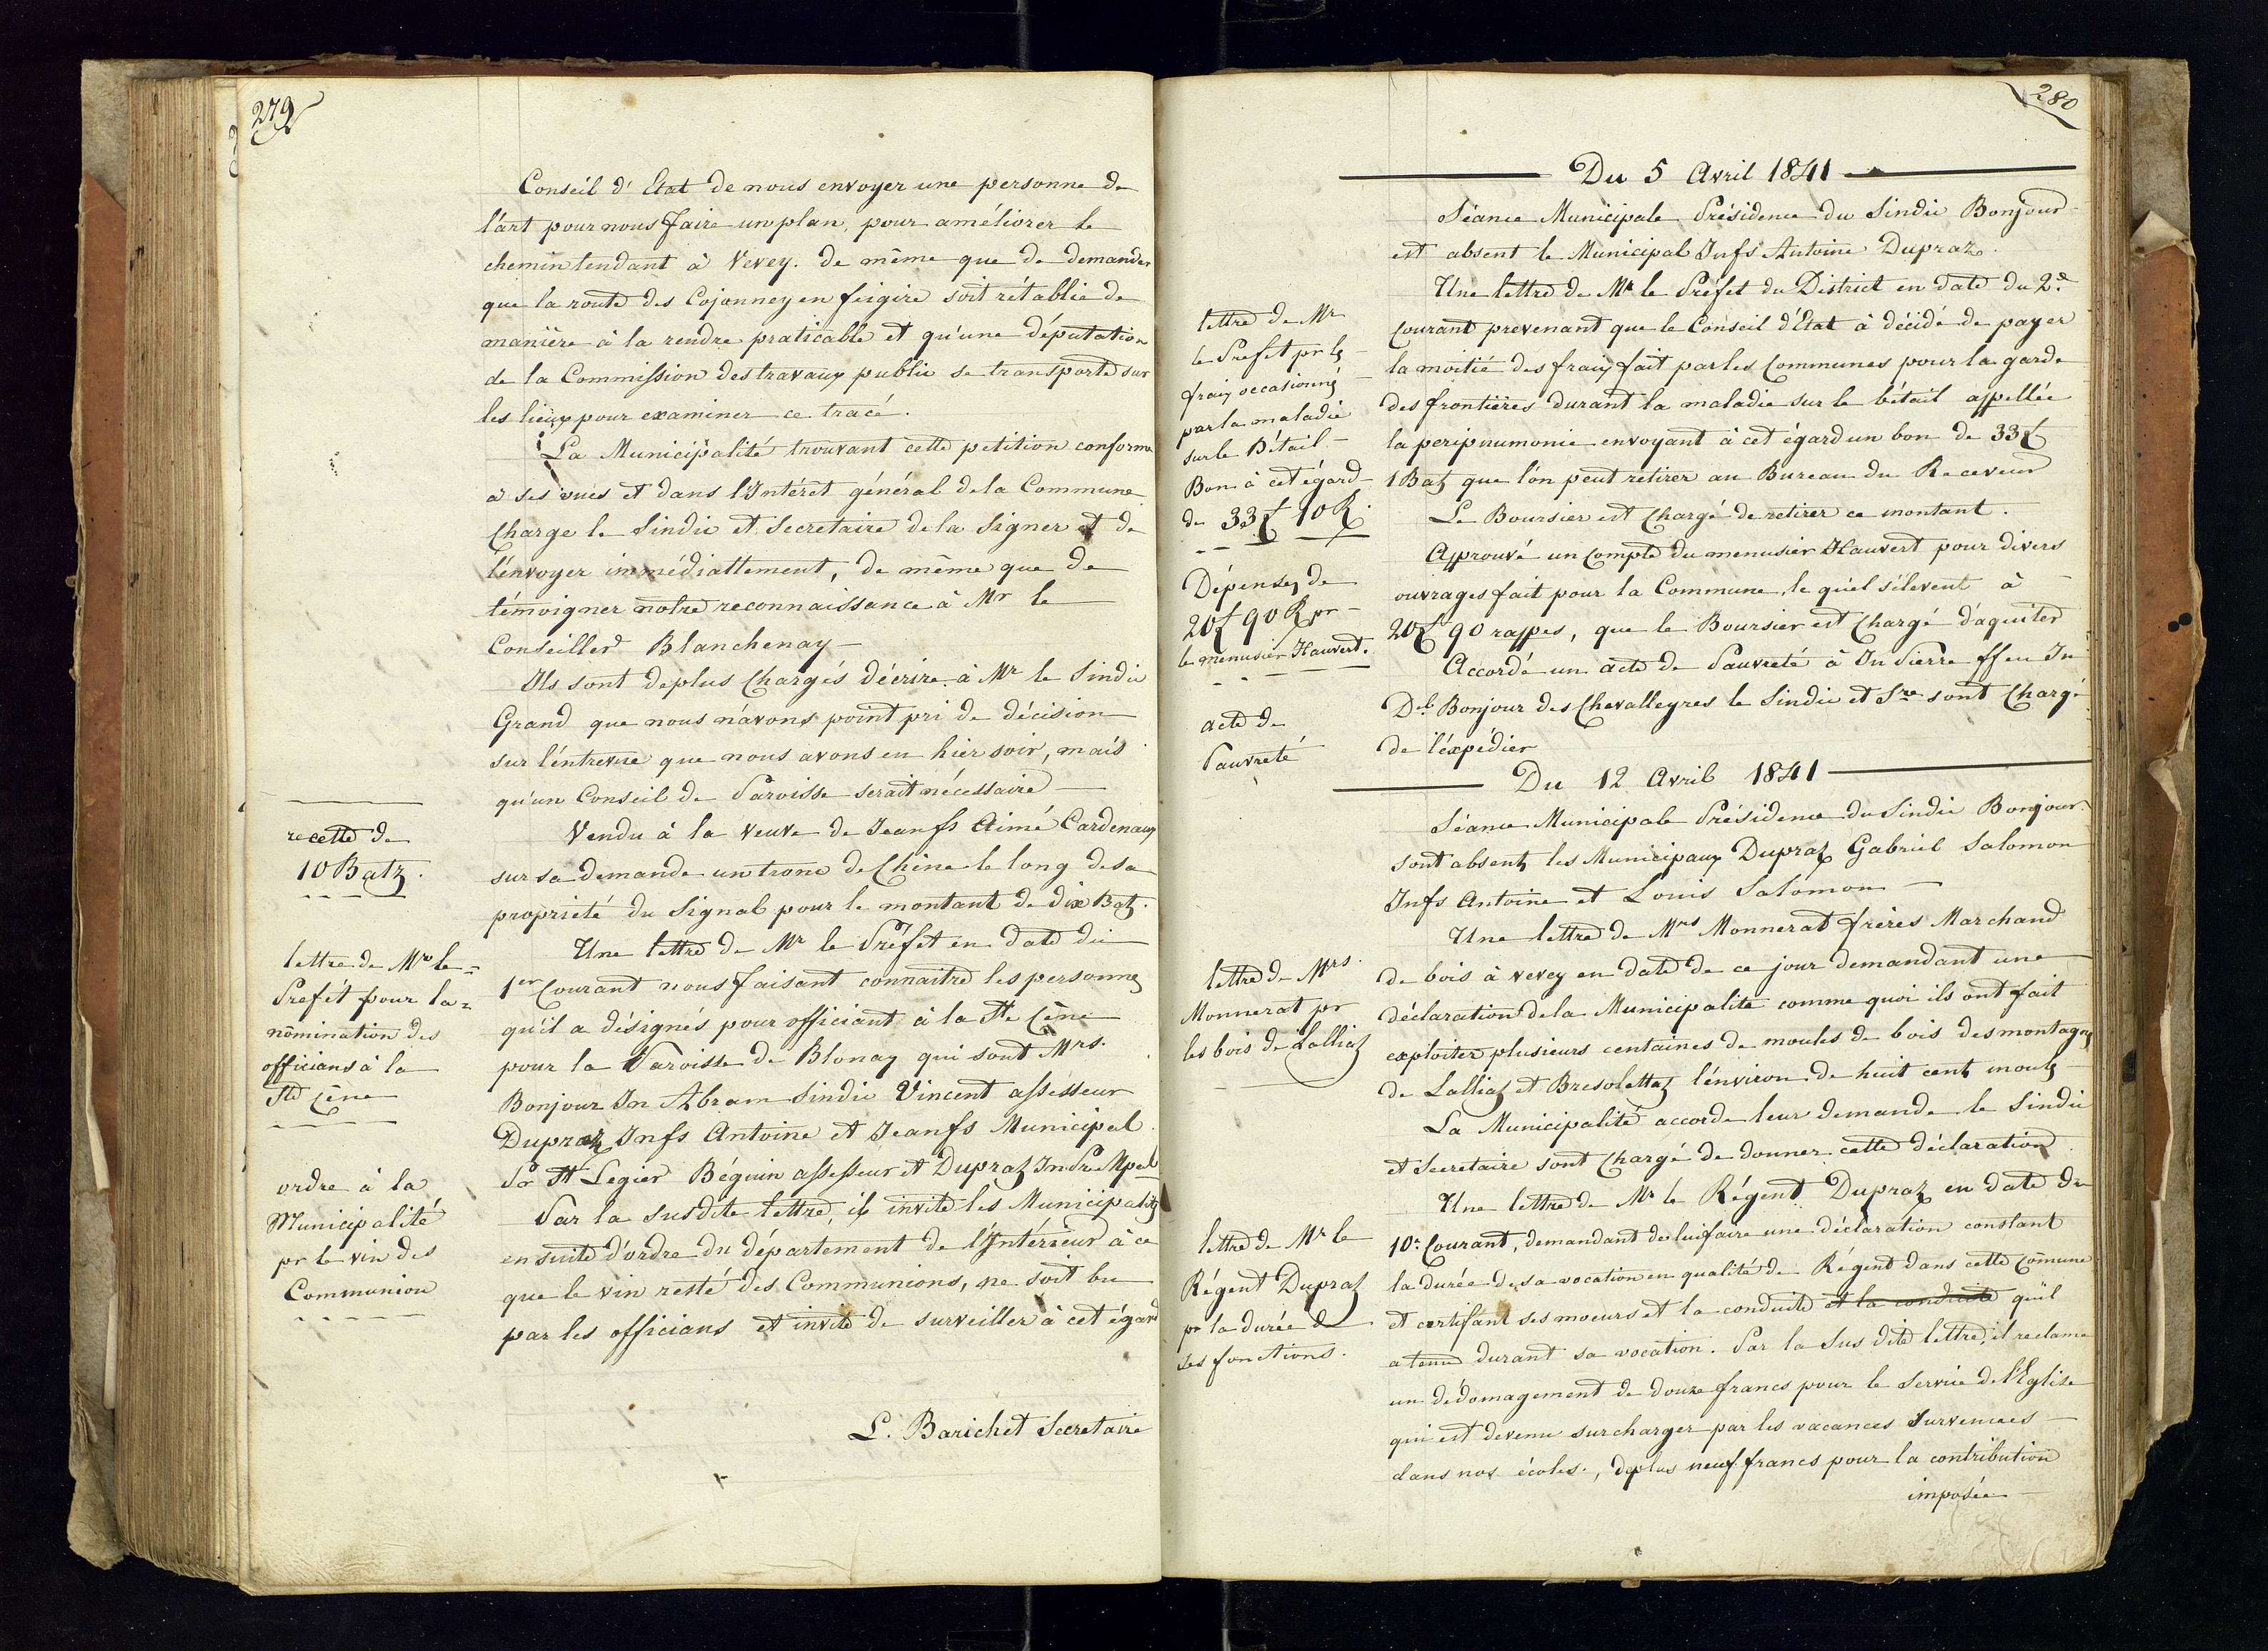 279
Conseil d'Etat de nous envoyer une personne de
l'art pour nous faire un plan, pour améliorer le
chemin tendant à Vevey. de même que de demander
que la route des Cojonney en feigire soit rétablie de
manière à la rendre praticable et qu'une députation
de la Commission des travaux public se transporte sur
les lieux pour examiner ce tracé.
La Municipalité trouvant cette petition conforme
à ses vues et dans l'Intéret général de la Commune
Charge le Sindic et Secretaire de la Signer et de
l'envoyer immédiattement, de même que de
témoigner notre reconnaissance à Mr le
Conseiller Blanchenay —
Ils sont deplus Chargés décrire à Mr le Sindic
Grand que nous n'avons point pri de décision
sur l'entrevue que nous avons eu hier soir, mais
qu'un Conseil de Paroisse serait nécessaire —
recette de
10 Batz.
Vendu à la veuve de Jeanfs Aimé Cardenaux
sur sa demande un tronc de Chêne le long de sa
proprieté du Signal pour le montant de dix Batz.
lettre de Mr le =
Prefét pour la =
nomination des
officians à la
Ste Cêne
Une lettre de Mr le Préfet en date du
1er Courant nous faisant connaitre les personnes
qu'il a désignés pour officiant à la Ste Cêne
pour la Paroisse de Blonay qui sont Mrs.
Bonjour Jn Abram Sindic Vincent assesseur
Dupraz Jnfs Antoine et Jeanfs Municipal
Pr St Legier Béguin assesseur et Dupraz Jn Pre Mpal
ordre à la
Municipalité
pr le vin des
Communion
Par la susdite lettre, il invite les Municipalités
ensuite d'ordre du département de l'Intérieur à ce
que le vin resté des Communions, ne soit bu
par les officians et invite de surveiller à cet égard
L. Barichet Secretaire
280
Du 5 Avril 1841
Séance Municipale Présidence du Sindic Bonjour
est absent le Municipal Jnfs Antoine Dupraz.
lettre de Mr
le Prefet pr les
fraix occasionnés
par la maladie
sur le Bétail —
Bon à cet égard
de 33 f 10 R.
Une lettre de Mr le Préfet du District en date du 2d
Courant prevenant que le Conseil d'Etat à décidé de payer
la moitié des fraix fait par les Communes pour la garde
des frontières durant la maladie sur le bétail appellée
la peripnumonie envoyant à cet égard un bon de 33 f
1 Batz que l'ón peut retirer au Bureau du Receveur
Le Boursier est Chargé de retirer ce montant.
Dépenses de
20 f 90 R pr
le menusier Hauvert.
Approuvé un Compte du menusier Hauvert pour divers
ouvrages fait pour la Commune, le quel s'élevent à
20 f 90 rappes, que le Boursier est Chargé d'aquiter
acte de
Pauvreté
Accordé un acte de Pauvreté à Jn Pierre ffeu Jn
Dl. Bonjour des Chevalleyres le Sindic et Sre sont Chargé
de l'éxpédier
Du 12 Avril 1841
Séance Municipale Présidence du Sindic Bonjour.
sont absents les Municipaux Dupraz Gabriel Salomon
Jnfs Antoine et Louis Salomon —
lettre de Mrs.
Monnerat pr
les bois de Lalliaz
Une lettre de Mrs Monnerat frères Marchand
de bois à vevey en date de ce jour demandant une
déclaration de la Municipalité comme quoi ils ont fait
exploiter plusieurs centaines de moules de bois des montagnes
de Lalliaz et Bresolettaz l'environ de huit cents moules
La Municipalité accorde leur demande le Sindic
et Secretaire sont Chargé de donner cette déclaration
lettre de Mr le
Régent Dupraz
pr la durée de
ses fonctions.
Une lettre de Mr le Régent Dupraz en date du
10e Courant, demandant de lui faire une déclaration constant
la durée de sa vocation en qualité de Régent dans cette Comune
et certifant ses moeurs et la conduite et la conduite qu'il
a tenu durant sa vocation. Par la Sus dite lettre, il reclame
un dédomagement de douze francs pour le Service de l'Eglise
qui est devenu surcharger par les vacances Survenues —
dans nos écoles., deplus neuf francs pour la contribution
imposée —